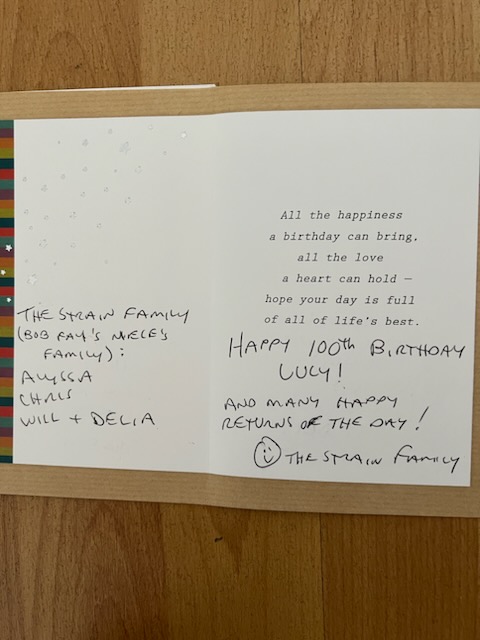 THE STRAIN FAMILY
(BOB RAY'S NIECE'S
FAMILY):
ALYSSA
CHRIS
WILL + DELIA
All the happiness
a birthday can bring,
all the love
a heart can hold —
hope your day is full
of all of life's best.
HAPPY 100th BIRTHDAY
LUCY!
AND MANY HAPPY
RETURNS OF THE DAY!
THE STRAIN FAMILY